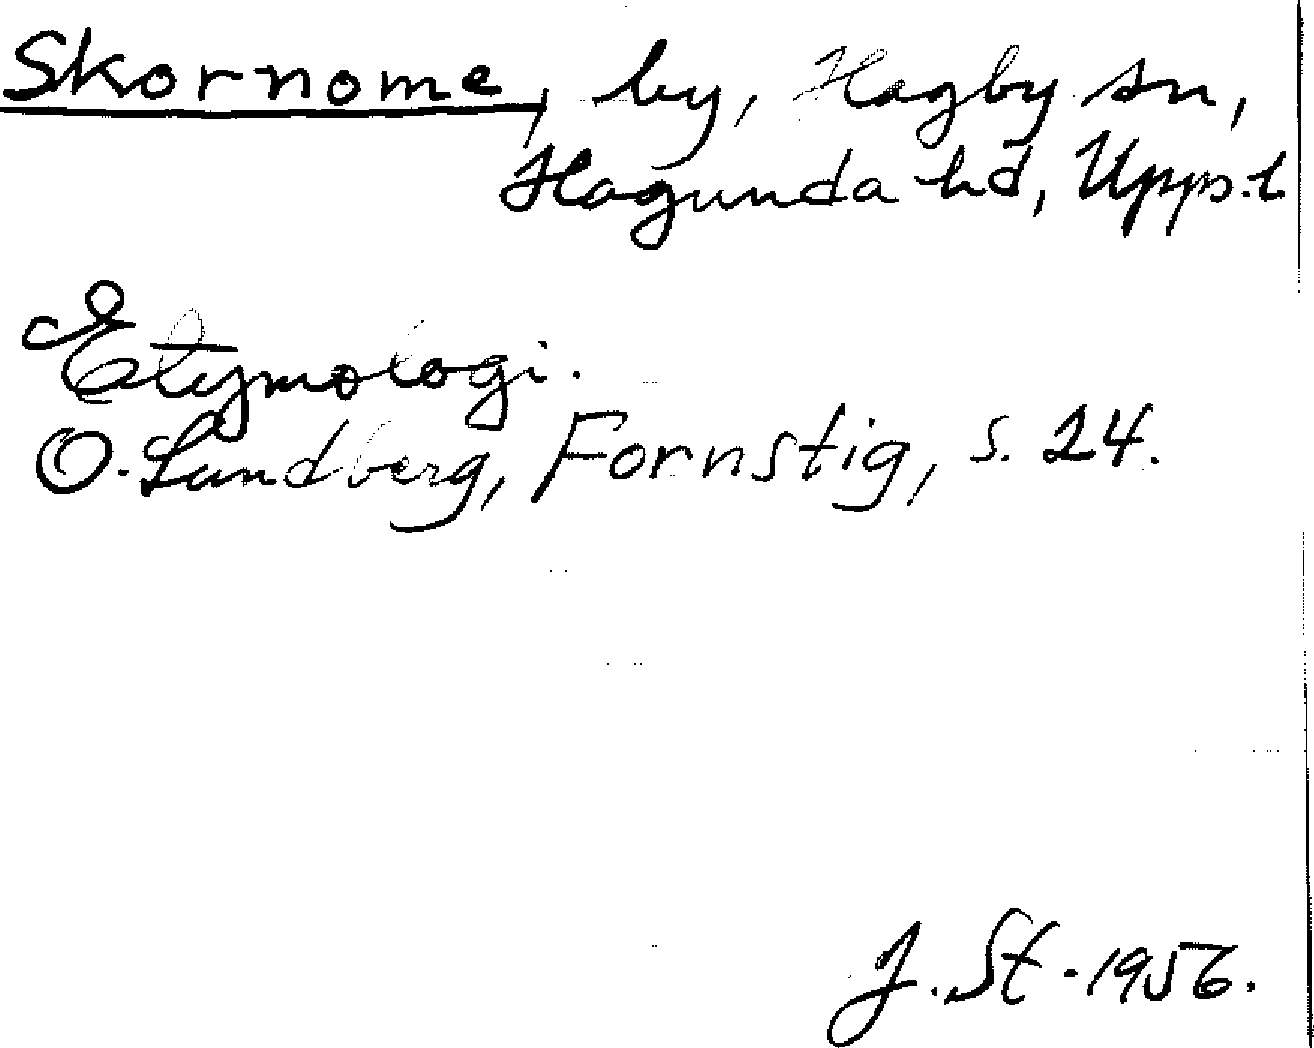 Skornome, by, Hagby sn,
Hagunda hd, Upps.l.
Etymologi.
O. Lundberg, Fornstig, s. 24.
J. St. 1956.